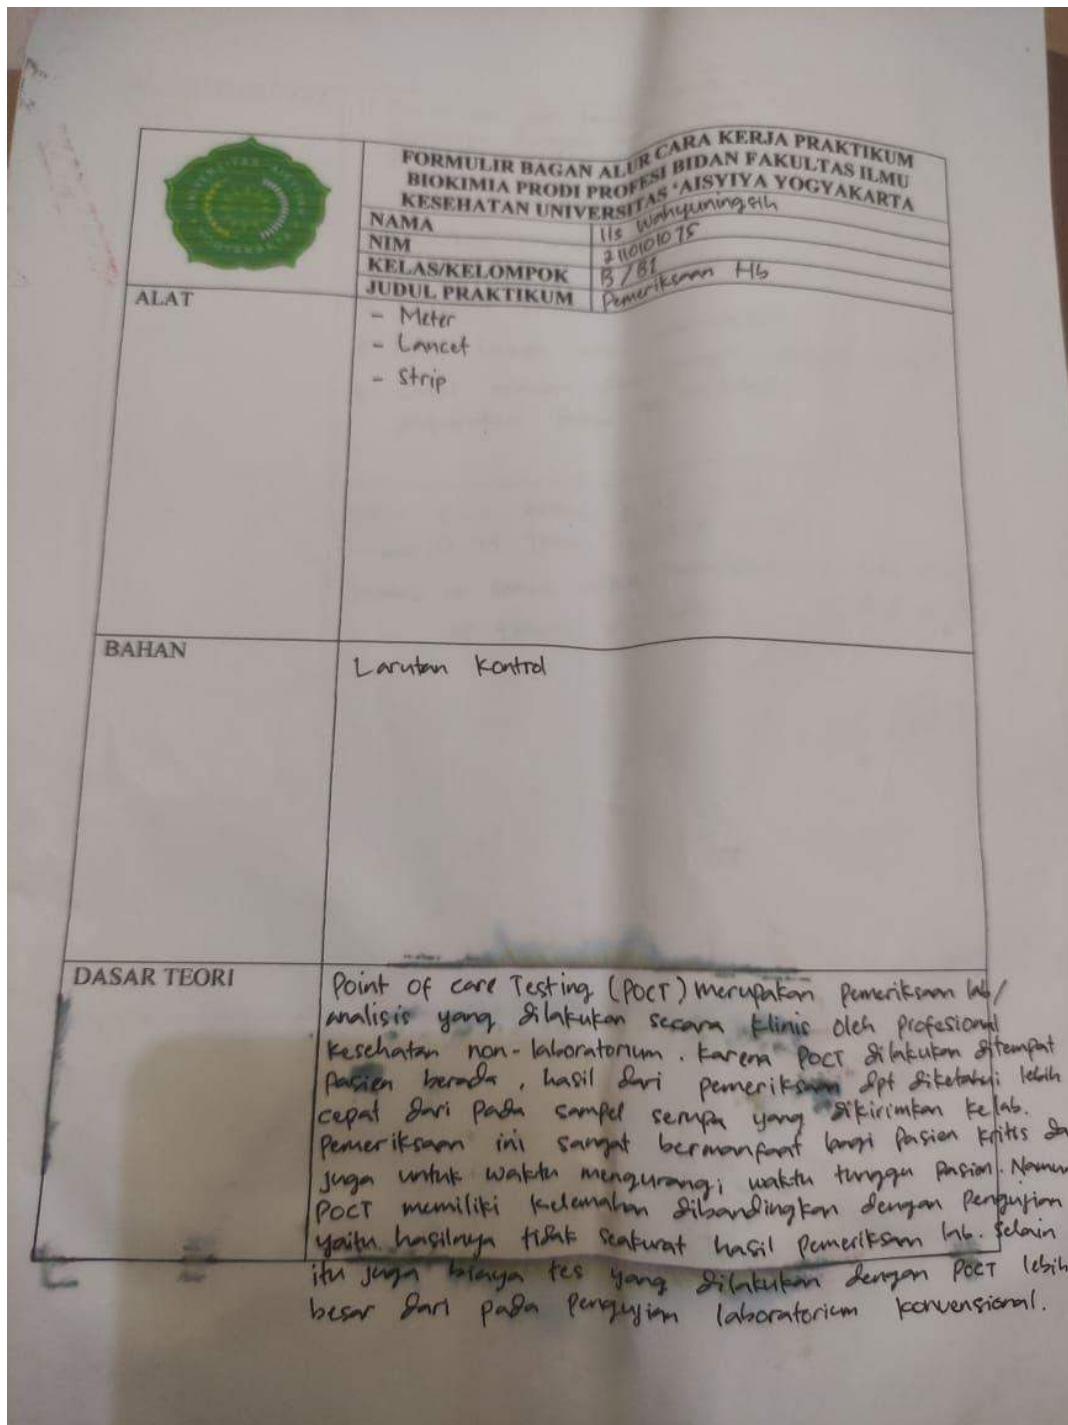 FORMULIR BAGAN ALUR CARA KERJA PRAKTIKUM
BIOKIMIA PRODI PROFESI BIDAN FAKULTAS ILMU
KESEHATAN UNIVERSITAS 'AISYIYA YOGYAKARTA
NAMA Iis Wahyuningsih
NIM 2110101075
KELAS/KELOMPOK B / B1
JUDUL PRAKTIKUM Pemeriksaan Hb
ALAT
- Meter
- Lancet
- Strip
BAHAN
Larutan Kontrol
DASAR TEORI
Point of care Testing (POCT) merupakan pemeriksaan lab/
analisis yang dilakukan secara klinis oleh profesional
kesehatan non-laboratorium. Karena POCT dilakukan ditempat
Pasien berada, hasil dari pemeriksaan dpt diketahui lebih
cepat dari pada sampel serupa yang dikirimkan ke lab.
Pemeriksaan ini sangat bermanfaat bagi Pasien kritis da
juga untuk waktu mengurangi waktu tunggu pasien. Namu
POCT memiliki kelemahan dibandingkan dengan Pengujian
yaitu hasilnya tidak seakurat hasil Pemeriksaan lab. Selain
itu juga biaya tes yang dilakukan dengan POCT lebih
besar dari pada Pengujian laboratorium konvensional.